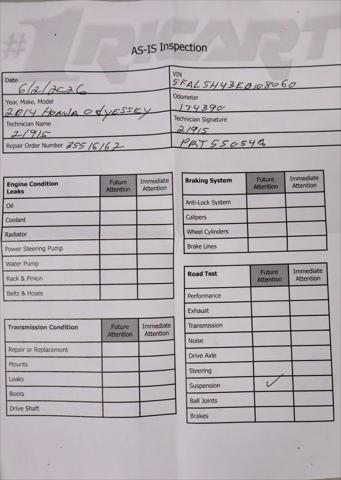 #1 RICART
AS-IS Inspection
Date
6/2/2026
VIN
5FAL5H43EB108060
Year, Make, Model
2014 Honda Odyessey
Odometer
174390
Technician Name
21915
Technician Signature
21915
Repair Order Number 35516162
PRT 550544
Engine Condition Leaks Future Attention Immediate Attention
Oil
Coolant
Radiator
Power Steering Pump
Water Pump
Rack & Pinion
Belts & Hoses
Transmission Condition Future Attention Immediate Attention
Repair or Replacement
Mounts
Leaks
Boots
Drive Shaft
Braking System Future Attention Immediate Attention
Anti-Lock System
Calipers
Wheel Cylinders
Brake Lines
Road Test Future Attention Immediate Attention
Performance
Exhaust
Transmission
Noise
Drive Axle
Steering
Suspension ✓
Ball Joints
Brakes